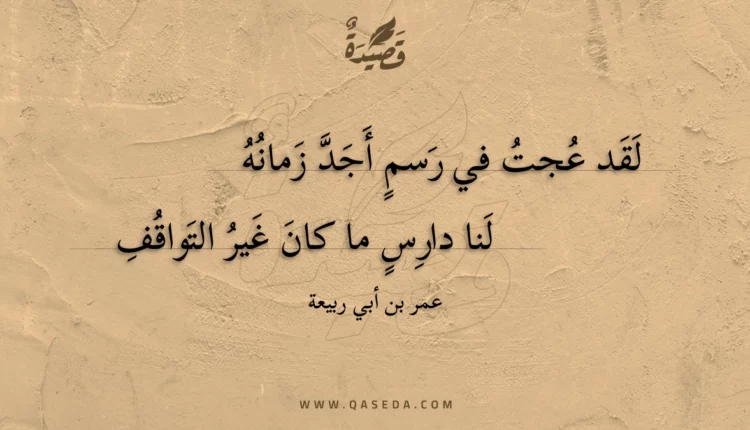 قَصِيْدَةٌ
لَقَد عُجتُ في رَسمٍ أَجَدَّ زَمانُهُ
لَنا دارِسٍ ما كانَ غَيرُ التَواقُفِ
عمر بن أبي ربيعة
WWW.QASEDA.COM